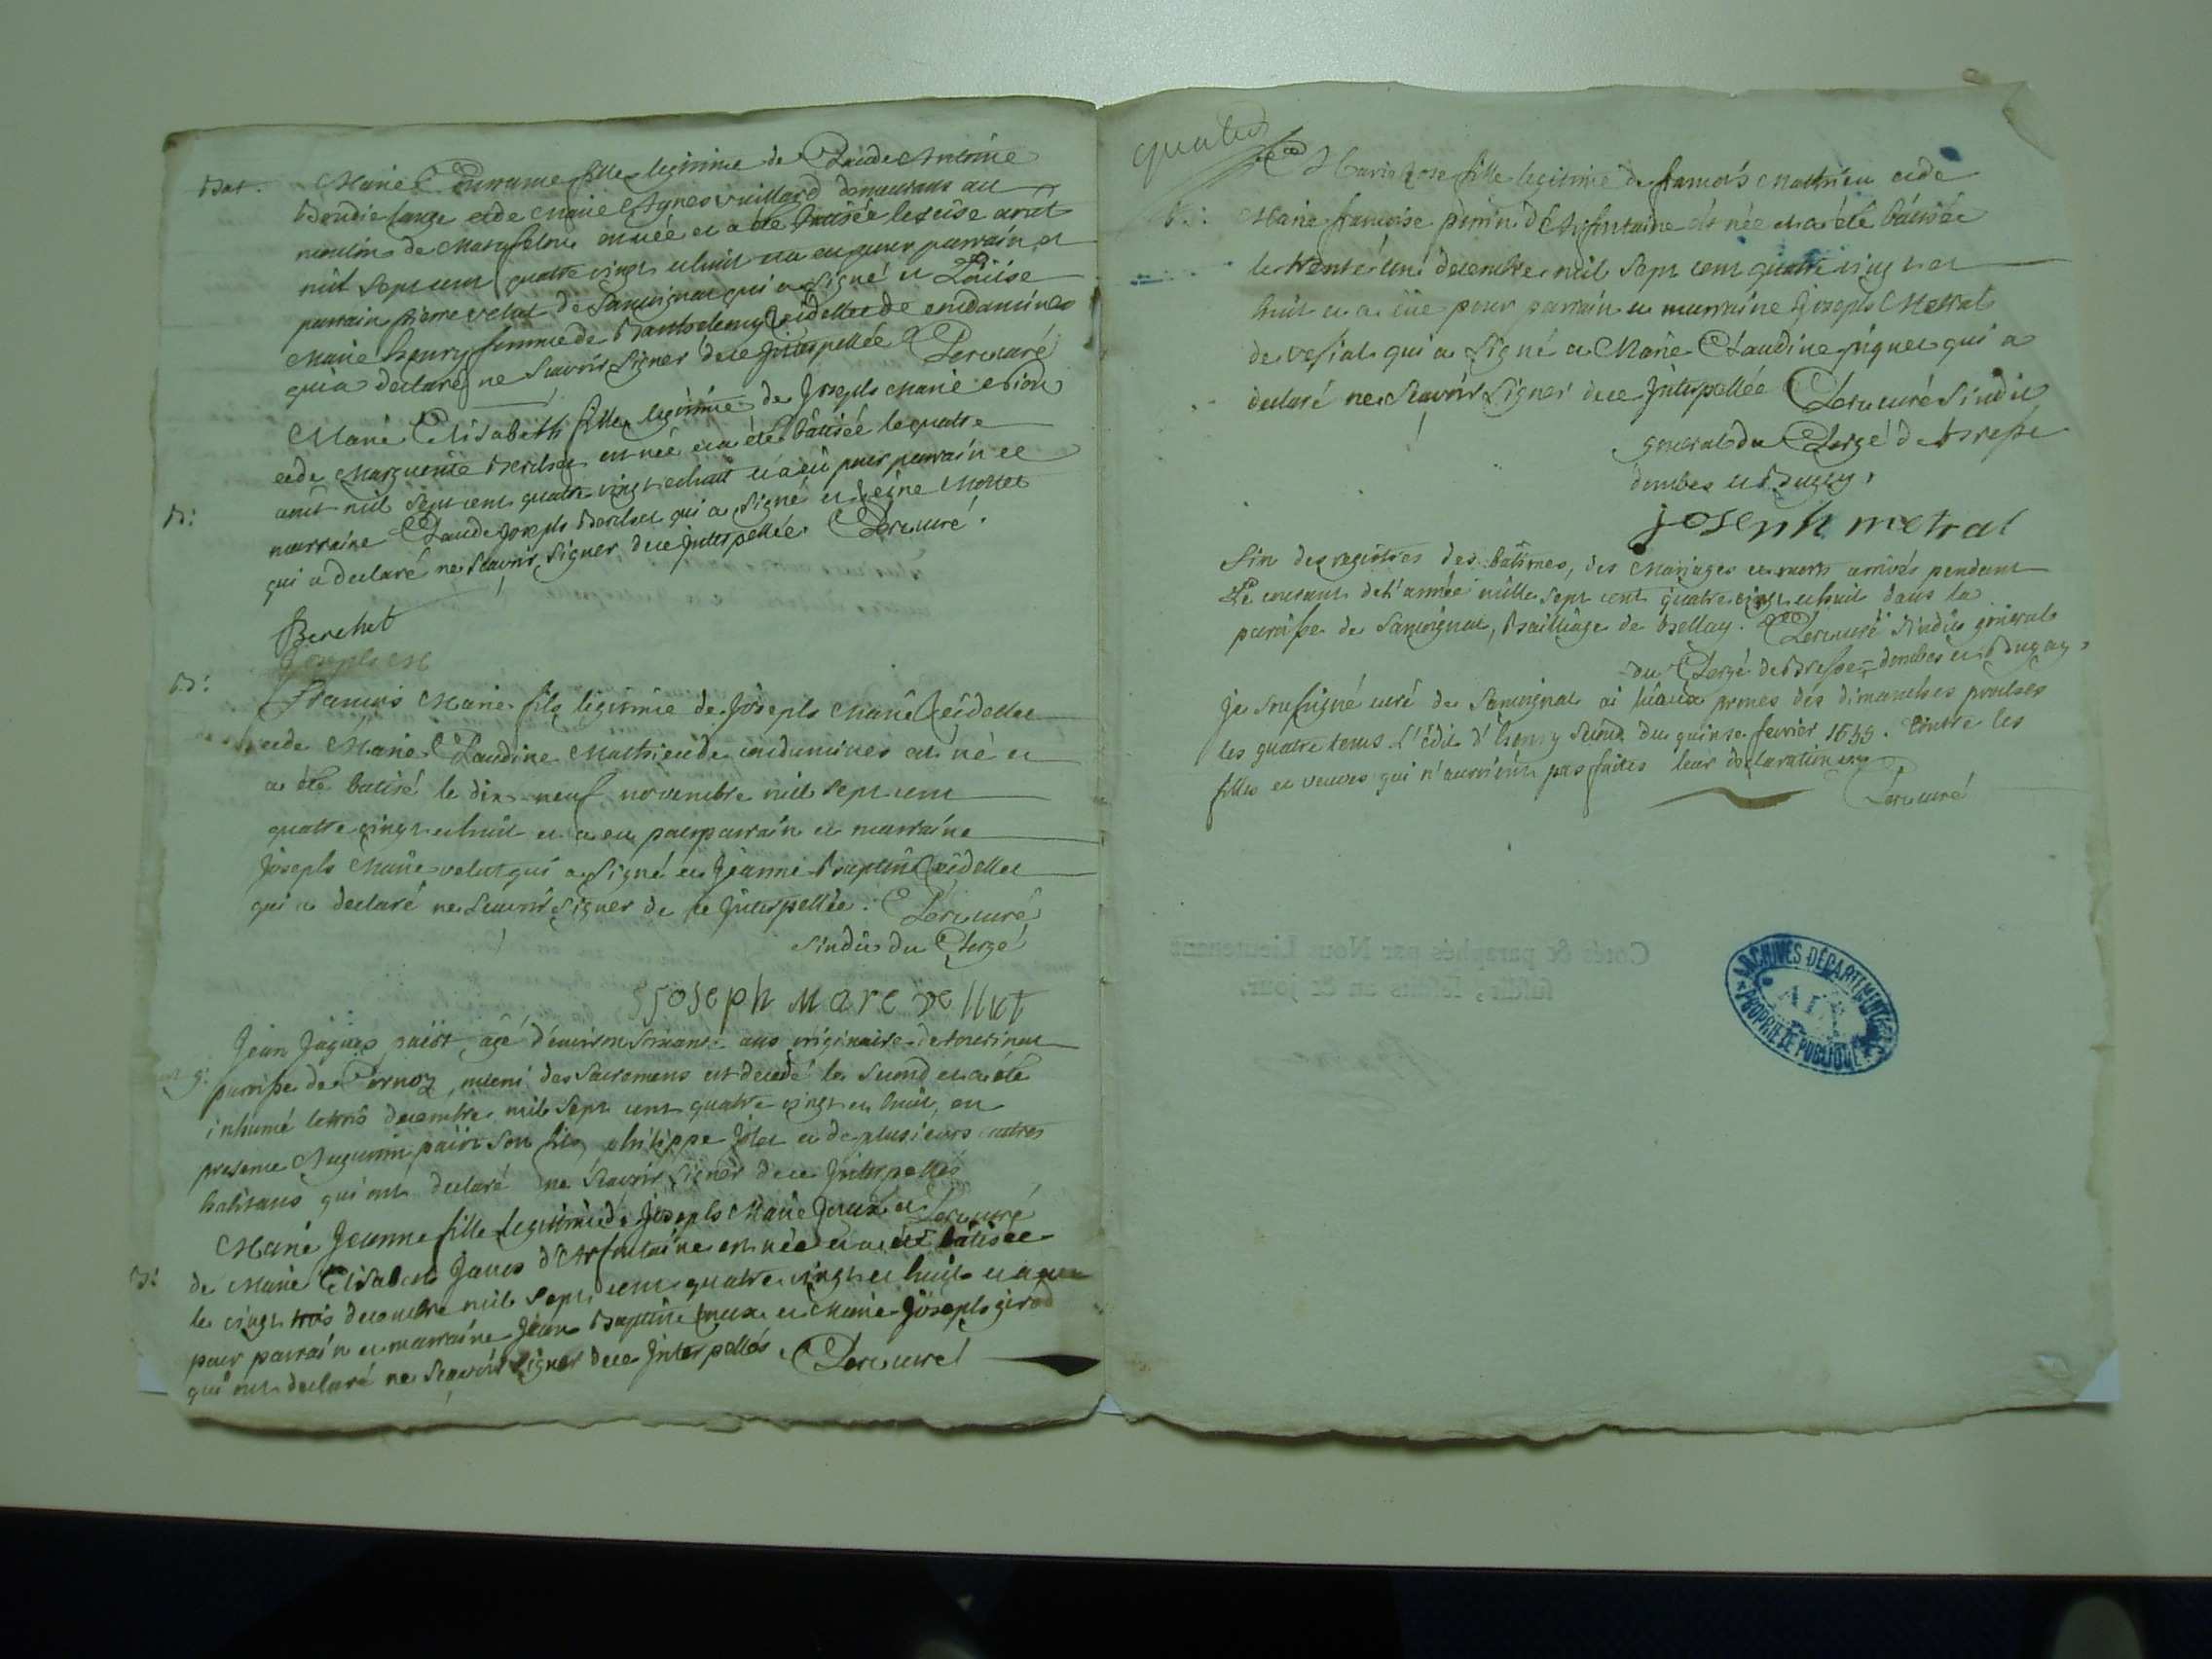 Bat. Marie fille legitime de Claude Antoine
et de Marie Agnes Vuillard demeurans au
moulin de est née et a été batisée le seise aout
mil sept cent quatre vingt et huit et a eu pour parrain et
parrain pierre velut de Samoignat qui a signé et Loüise
Marie henry femme de Barthelemy Reidellet de condamines
qui a declaré ne scavoir signer de ce interpellée curé
Marie Elisabeth fille legitime de Joseph Marie
et de Marguerite Berchet est née et a été bâtisée le quatre
B: aout mil sept cent quatre vingt et huit et a eu pour parrain et
marraine Claude Joseph Berchet qui a signé et Reine
qui a declaré ne scavoir signer de ce interpellée. curé.
Berchet
B: francois Marie fils legitime de Joseph Marie Reidellet
et de Marie Claudine Mathieu de condamines est né et
a été batisé le dix neuf novembre mil sept cent
quatre vingt et huit et a eu pour parrain et marraine
Joseph Marie velut qui a signé et Jeanne Baptiste Reidellet
qui a declaré ne scavoir signer de ce interpellée. curé
sindic du Clergé
joseph mare vellut
Jean Jaques païot agé d'environ soixante ans originaire de
parroisse de Cornoz, muni des sacremens est decedé le second et a été
inhumé le trois decembre mil sept cent quatre vingt et huit, en
presence Augustin païot son fils, philippe et de plusieurs autres
habitans qui ont declaré ne scavoir signer de ce interpellés
curé
Marie Jeanne fille legitime de Joseph Marie et
B: de Marie Elisabeth d'Arfontaine est née et a été bâtisée
le vingt trois decembre mil sept cent quatre vingt et huit et a eu
pour parrain et marraine Jean Baptiste et Marie Joseph girod
qui ont declaré ne scavoir signer de ce interpellés. curé
quatre
Marie Rose fille legitime de francois Mathieu et de
B: Marie francoise perrin d'Arfontaine est née et a été bâtisée
le trente un decembre mil sept cent quatre vingt et
huit et a eüe pour parrain et marraine Joseph Metral
de vesiat qui a signé et Marie Claudine qui a
declaré ne scavoir signer de ce interpellée curé sindic
general du Clergé de Bresse
dombes et Bugey,
joseph metral
fin des registres des bâtêmes, des Mariages et morts arrivés pendant
Le courant de l'année mille sept cent quatre vingt et huit dans la
paroisse de Samoignat, Bailliage de Bellay. curé sindic général
du Clergé de Bresse = dombes et Bugey,
Je soussigné curé de Samoignat ai lû aux prônes des dimanches
les quatre tems L'Edit d'henry second du quinse fevrier 1556. Contre les
filles et veuves qui n'auroient pas faites leur declaration
curé
Cotés & paraphés par Nous Lieutenant
susdits, lesdits an & jour.
ARCHIVES DÉPARTEMENTALES
AIN
PROPRIÉTÉ PUBLIQUE